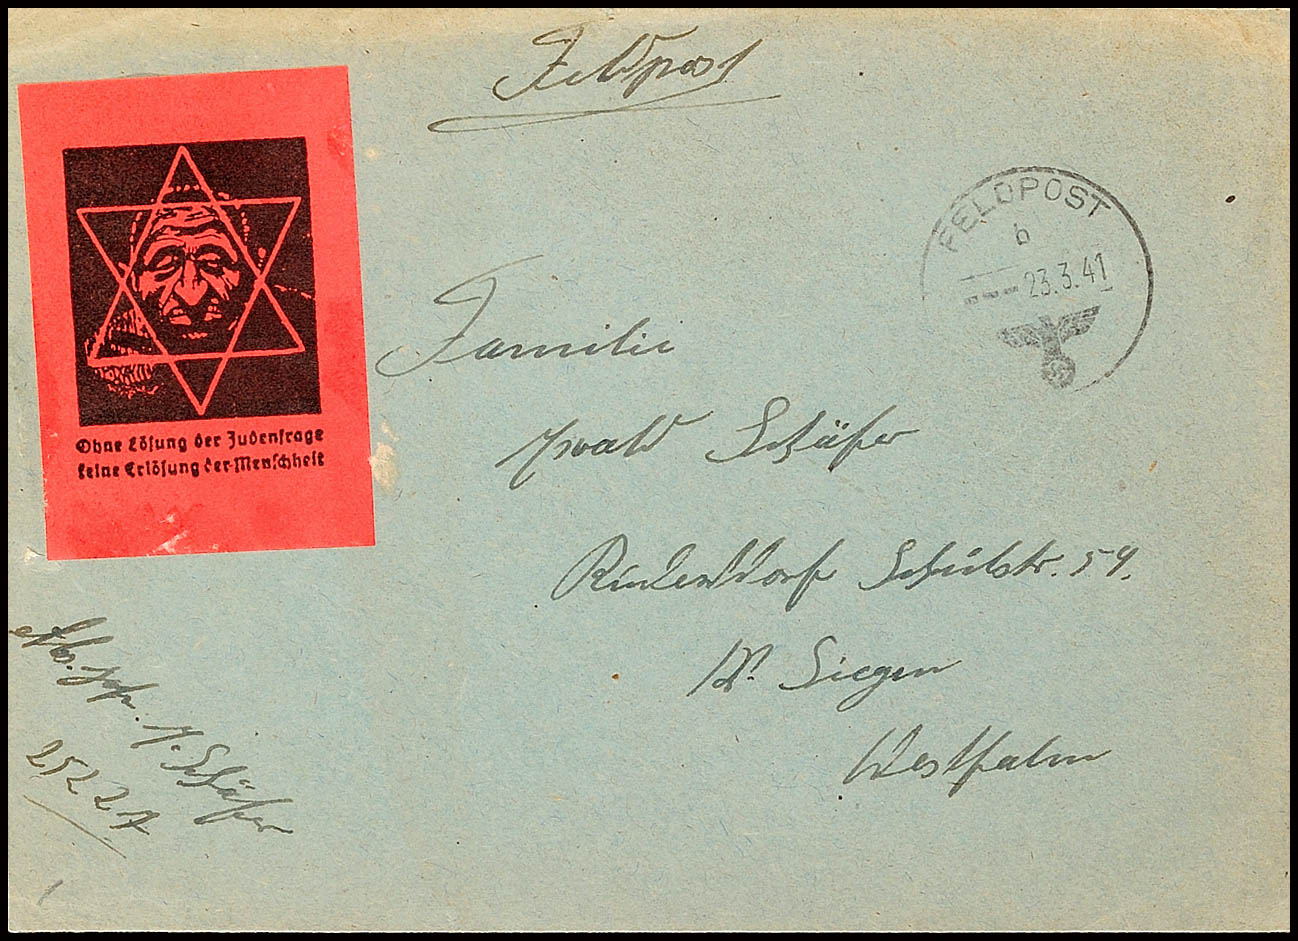 Feldpost
FELDPOST
b
23.3.41
Ohne Lösung der Judenfrage
keine Erlösung der Menschheit
Familie
Ewald Schäfer
Schulstr. 54.
Siegen
Westfalen
Abs. Gefr. Schäfer
25227